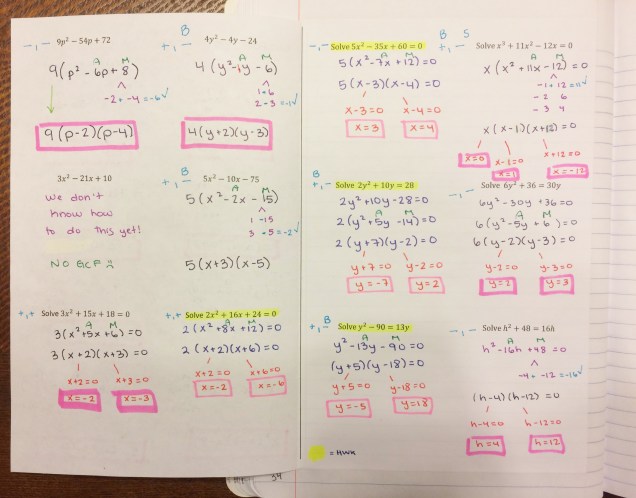 -, - 9p² − 54p + 72
9(p² - 6p + 8)
A M
-2 + -4 = -6 ✓
9(p-2)(p-4)
B
+, - 4y² − 4y − 24
4(y² - 1y - 6)
A M
1 • 6
2 - 3 = -1 ✓
4(y+2)(y-3)
3x² − 21x + 10
we don't
know how
to do this yet!
NO GCF
B
+, - 5x² − 10x − 75
5(x² - 2x - 15)
A M
1 -15
3 - 5 = -2 ✓
5(x+3)(x-5)
+, + Solve 3x² + 15x + 18 = 0
3(x² + 5x + 6) = 0
A M
3(x+2)(x+3) = 0
x+2=0 x+3=0
x=-2 x=-3
+, + Solve 2x² + 16x + 24 = 0
2(x² + 8x + 12) = 0
A M
2(x+2)(x+6) = 0
x+2=0 x+6=0
x=-2 x=-6
-, - Solve 5x² − 35x + 60 = 0
5(x² - 7x + 12) = 0
A M
5(x-3)(x-4) = 0
x-3=0 x-4=0
x=3 x=4
B S
+, - Solve x³ + 11x² − 12x = 0
x(x² + 11x - 12) = 0
A M
-1 + 12 = 11 ✓
-2 6
-3 4
x(x-1)(x+12) = 0
x=0 x-1=0 x+12=0
x=1 x=-12
B
+, - Solve 2y² + 10y = 28
2y² + 10y - 28 = 0
2(y² + 5y - 14) = 0
A M
2(y+7)(y-2) = 0
y+7=0 y-2=0
y=-7 y=2
-, - Solve 6y² + 36 = 30y
6y² - 30y + 36 = 0
6(y² - 5y + 6) = 0
A M
6(y-2)(y-3) = 0
y-2=0 y-3=0
y=2 y=3
B
+, - Solve y² − 90 = 13y
y² - 13y - 90 = 0
A M
(y+5)(y-18) = 0
y+5=0 y-18=0
y=-5 y=18
-, - Solve h² + 48 = 16h
h² - 16h + 48 = 0
A M
-4 + -12 = -16 ✓
(h-4)(h-12) = 0
h-4=0 h-12=0
h=4 h=12
= HWK
34